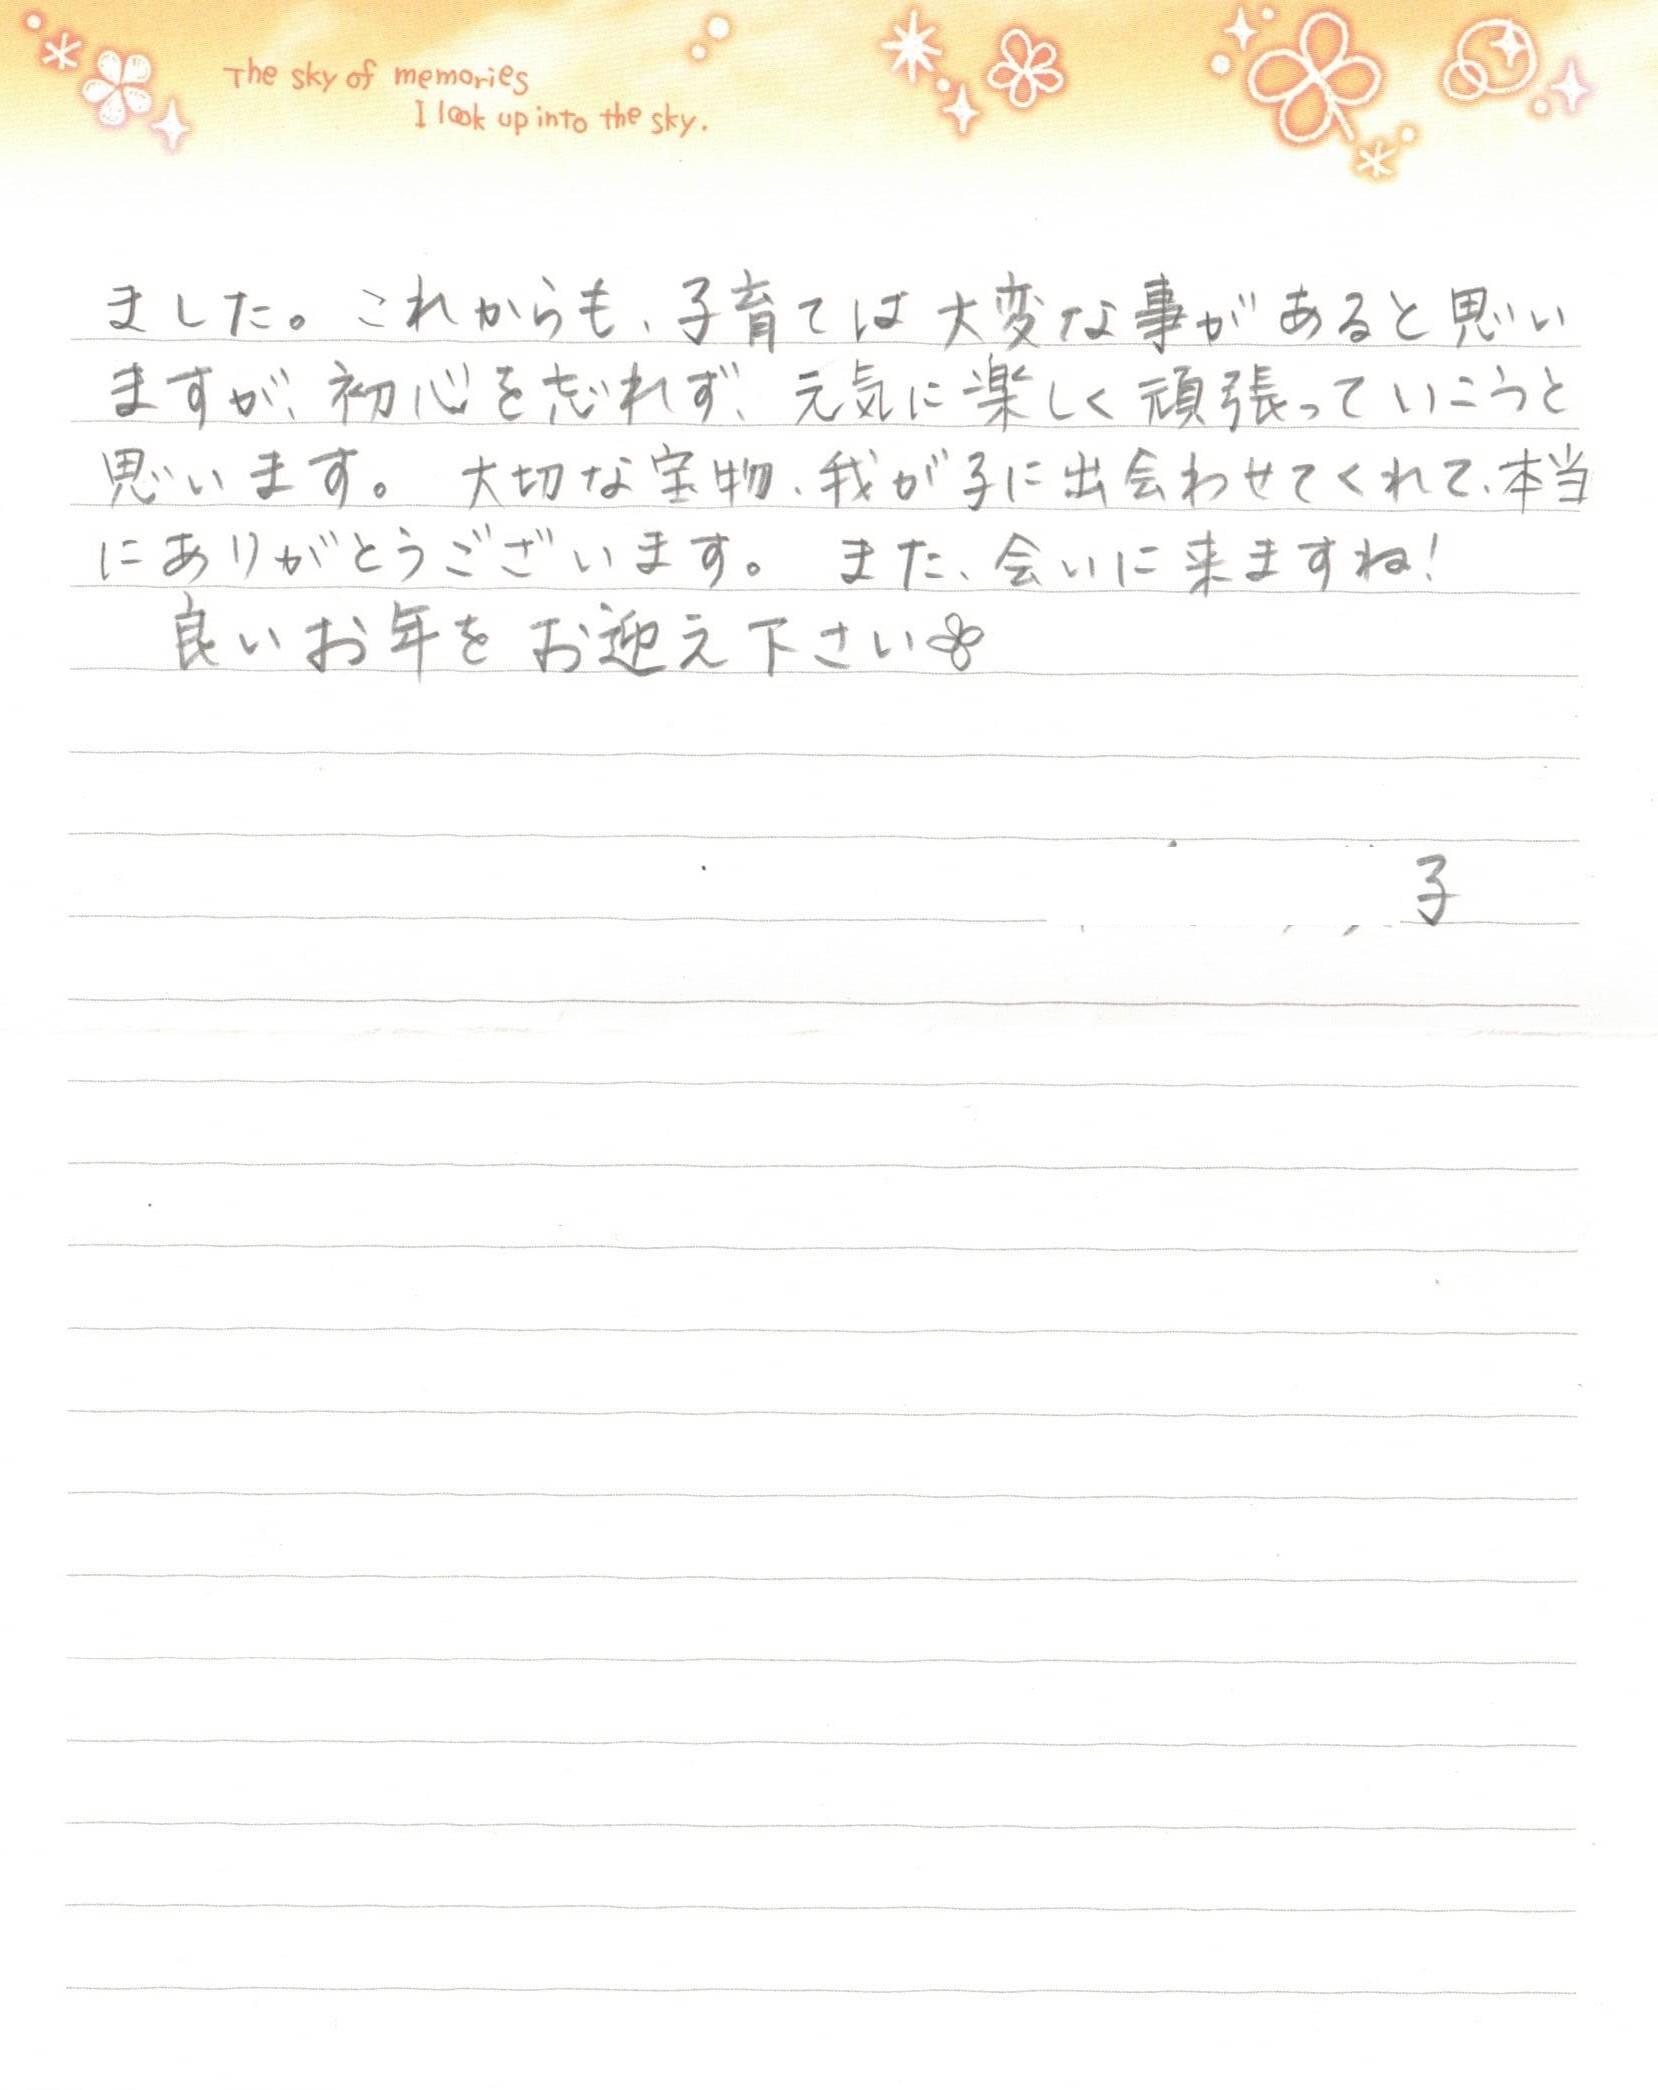 The sky of memories
I look up into the sky.
ました。これからも、子育ては大変な事があると思い
ますが、初心を忘れず、元気に楽しく頑張っていこうと
思います。大切な宝物、我が子に出会わせてくれて、本当
にありがとうございます。また、会いに来ますね!
良いお年をお迎え下さい
子